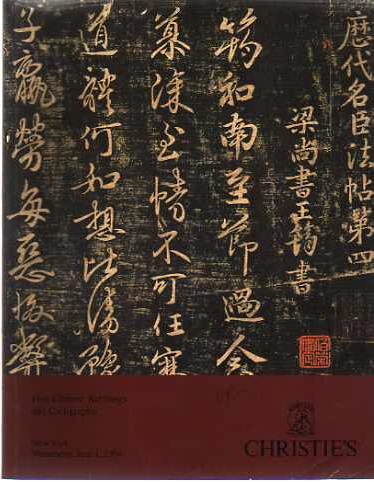 歷代名臣法帖第四
梁尚書王筠書
筠和南至節過念
慕深至情不可任寒
道體何如想比清豫
子羸勞每惡
Fine Chinese Paintings
and Calligraphy
New York
Wednesday, June 1, 1994
CHRISTIE'S